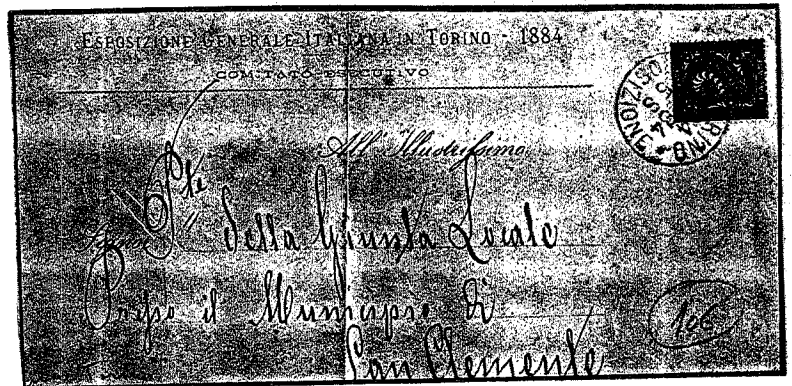 ESPOSIZIONE GENERALE ITALIANA IN TORINO - 1884
COMITATO ESECUTIVO
All' Illustrissimo
Signor Pte
della Giunta Locale
Presso il Municipio di
San Clemente
106